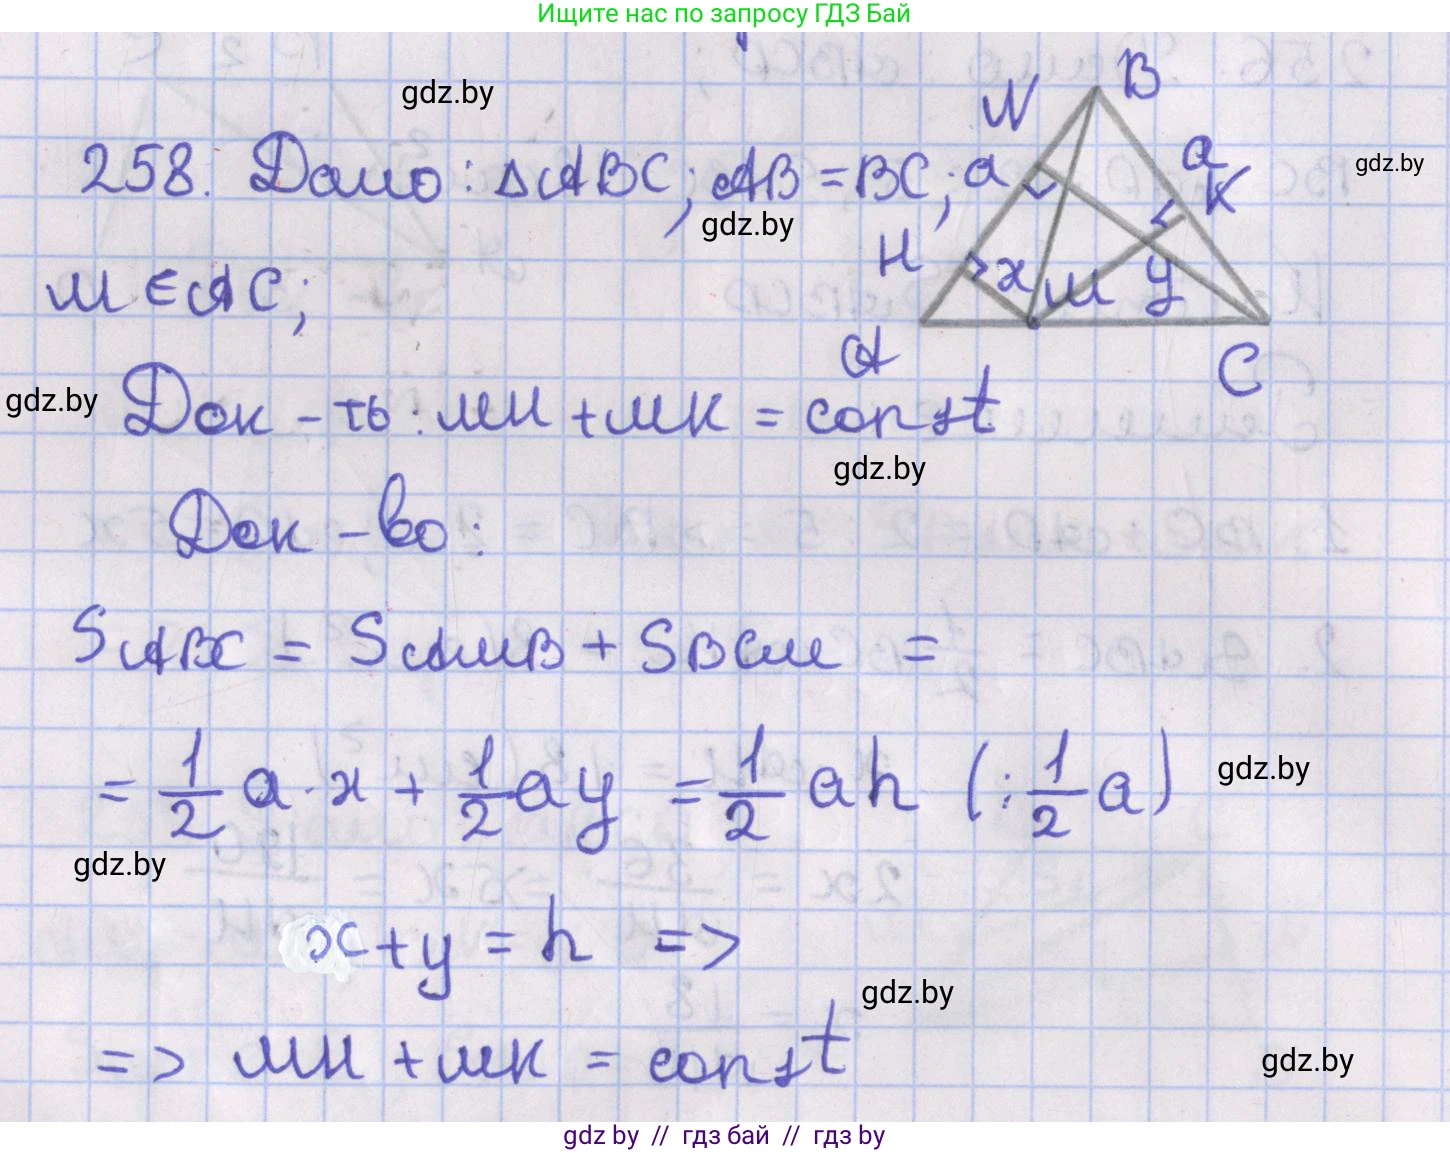 Ищите нас по запросу ГДЗ Бай
gdz.by
258. Дано: ΔABC; AB = BC;
gdz.by
gdz.by
M ∈ AC;
N B a a K H x M y A C
gdz.by
Док-ть: MH + MK = const
gdz.by
Док-во:
S ABC = S AMB + S BCM =
= 1/2 a · x + 1/2 ay = 1/2 ah (: 1/2 a)
gdz.by
gdz.by
x + y = h =>
gdz.by
=> MH + MK = const
gdz.by
gdz by // гдз бай // гдз by